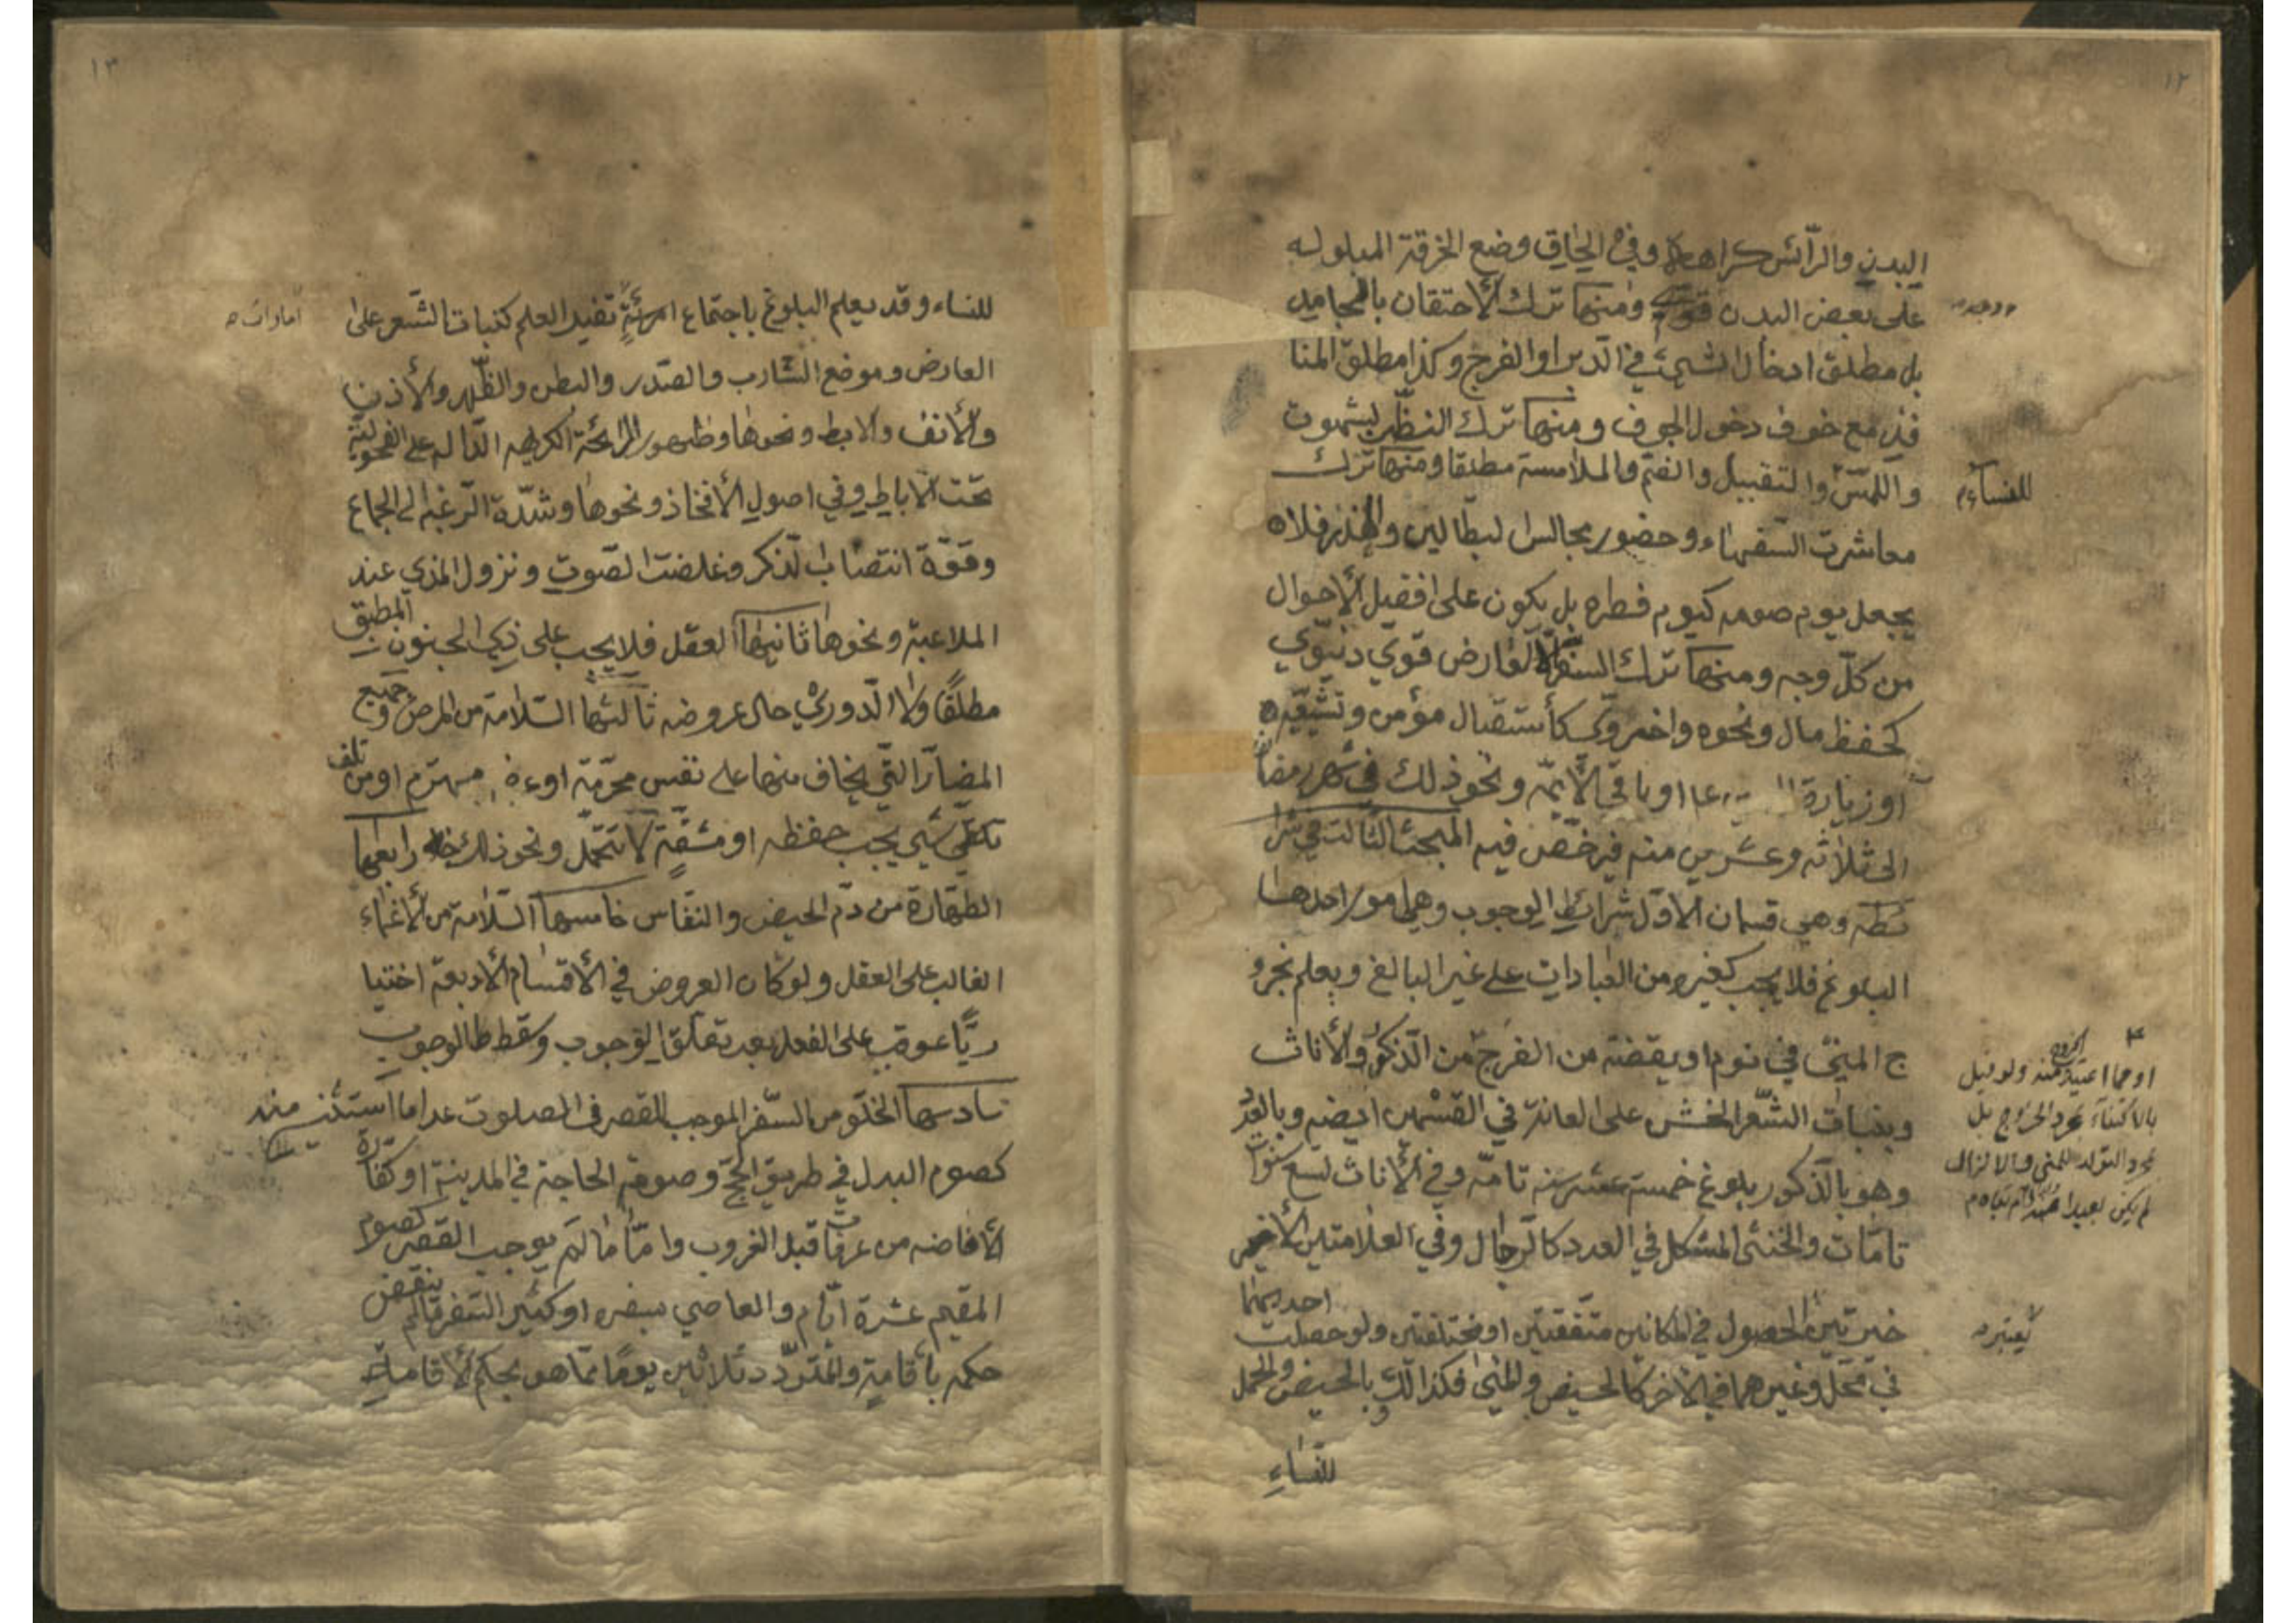 ١٢
البدن والرأس كراهة وفي إلحاق وضع الخرقة المبلوله
على بعض البدن قوي ومنها ترك الأحتقان بالجامد
بل مطلق ادخال الشيئ في الدبر او الفرج وكذا مطلق المنا
فذ مع خوف دخول الجوف ومنها ترك النظر بشهوت
واللمس والتقبيل والضم والملامسة مطلقا ومنها ترك
للنساء م
معاشرت السفهاء وحضور مجالس البطالين والهذر فلا
يجعل يوم صومه كيوم فطره بل يكون على افضل الأحوال
من كل وجه ومنها ترك السفر الا لعارض قوي دنيوي
كحفظ مال ونحوه واخروي كأستقبال مؤمن وتشييعه
او زيارة عا او باقي الأئمه ونحو ذلك في شهر رمضا
الى ثلاثه وعشرين منه فيرخص فيه المبحث الثالث في شرا
ئطه وهي قسمان الاول شرائط الوجوب وهي امور احدها
البلوغ فلا يجب كغيره من العبادات على غير البالغ ويعلم بخرو
ج المني في نوم او يقضة من الفرج من الذكور والأناث
او مما اعتيد الخروج منه ولو قيل
بالاكتفاء بمجرد الخروج بل
بمجرد التولد للمني وبالانزال
لم يكن بعيدا
وبنبات الشعر الخشن على العانة في القسمين ايضه وبالعدد
وهو بالذكور بلوغ خمسة عشر سنه تامه وفي الأناث تسع سنوات
تامات والخنثى المشكل في العدد كالرجال وفي العلامتين الأخير
خيرتين الحصول في المكانين متفقتين او مختلفتين ولو حصلت احديهما
يعتبر م
في محل وغيرهما في الأخر كالحيض والمني فكذالك وبالحيض والحمل
للنساء
١٣
للنساء وقد يعلم البلوغ باجتماع تفيد العلم كنبات الشعر على
امارات م
العارض وموضع الشارب والصدر والبطن والظهر والأذن
والأنف والابط ونحوها وظهور الرائحة الكريهه الداله على الفحولية
تحت الاباط وفي اصول الأفخاذ ونحوها وشدة الرغبه الى الجماع
وقوة انتصاب الذكر وغلضت الصوت ونزول المذي عند
الملاعبة ونحوها ثانيها العقل فلا يجب على ذي الجنون المطبق
مطلقا ولا الدوري حال عروضه ثالثها السلامة من المرض وجميع
المضار التي يخاف منها على نفس محترمة او محترم او من تلف
شيئ يجب حفظه او مشقة لا تتحمل ونحو ذلك رابعها
الطهارة من دم الحيض والنفاس خامسها السلامة من الأغماء
الغالب على العقل ولو كان العروض في الأقسام الأربعة اختيا
ريا عوقب على الفعل بعد تعلق الوجوب وسقط الوجوب
سادسها الخلو من السفر الموجب للقصر في الصلوت عدا ما استثني منه
كصوم البدل في طريق الحج وصوم الحاجة في المدينة او كفارة
الأفاضه من عرفات قبل الغروب واما ما لم يوجب القصر كصوم
المقيم عشرة ايام والعاصي بسفره او كثير السفر ما لم ينقض
حكمه بأقامة والمتردد ثلاثين يوما مما هو بحكم الأقامة